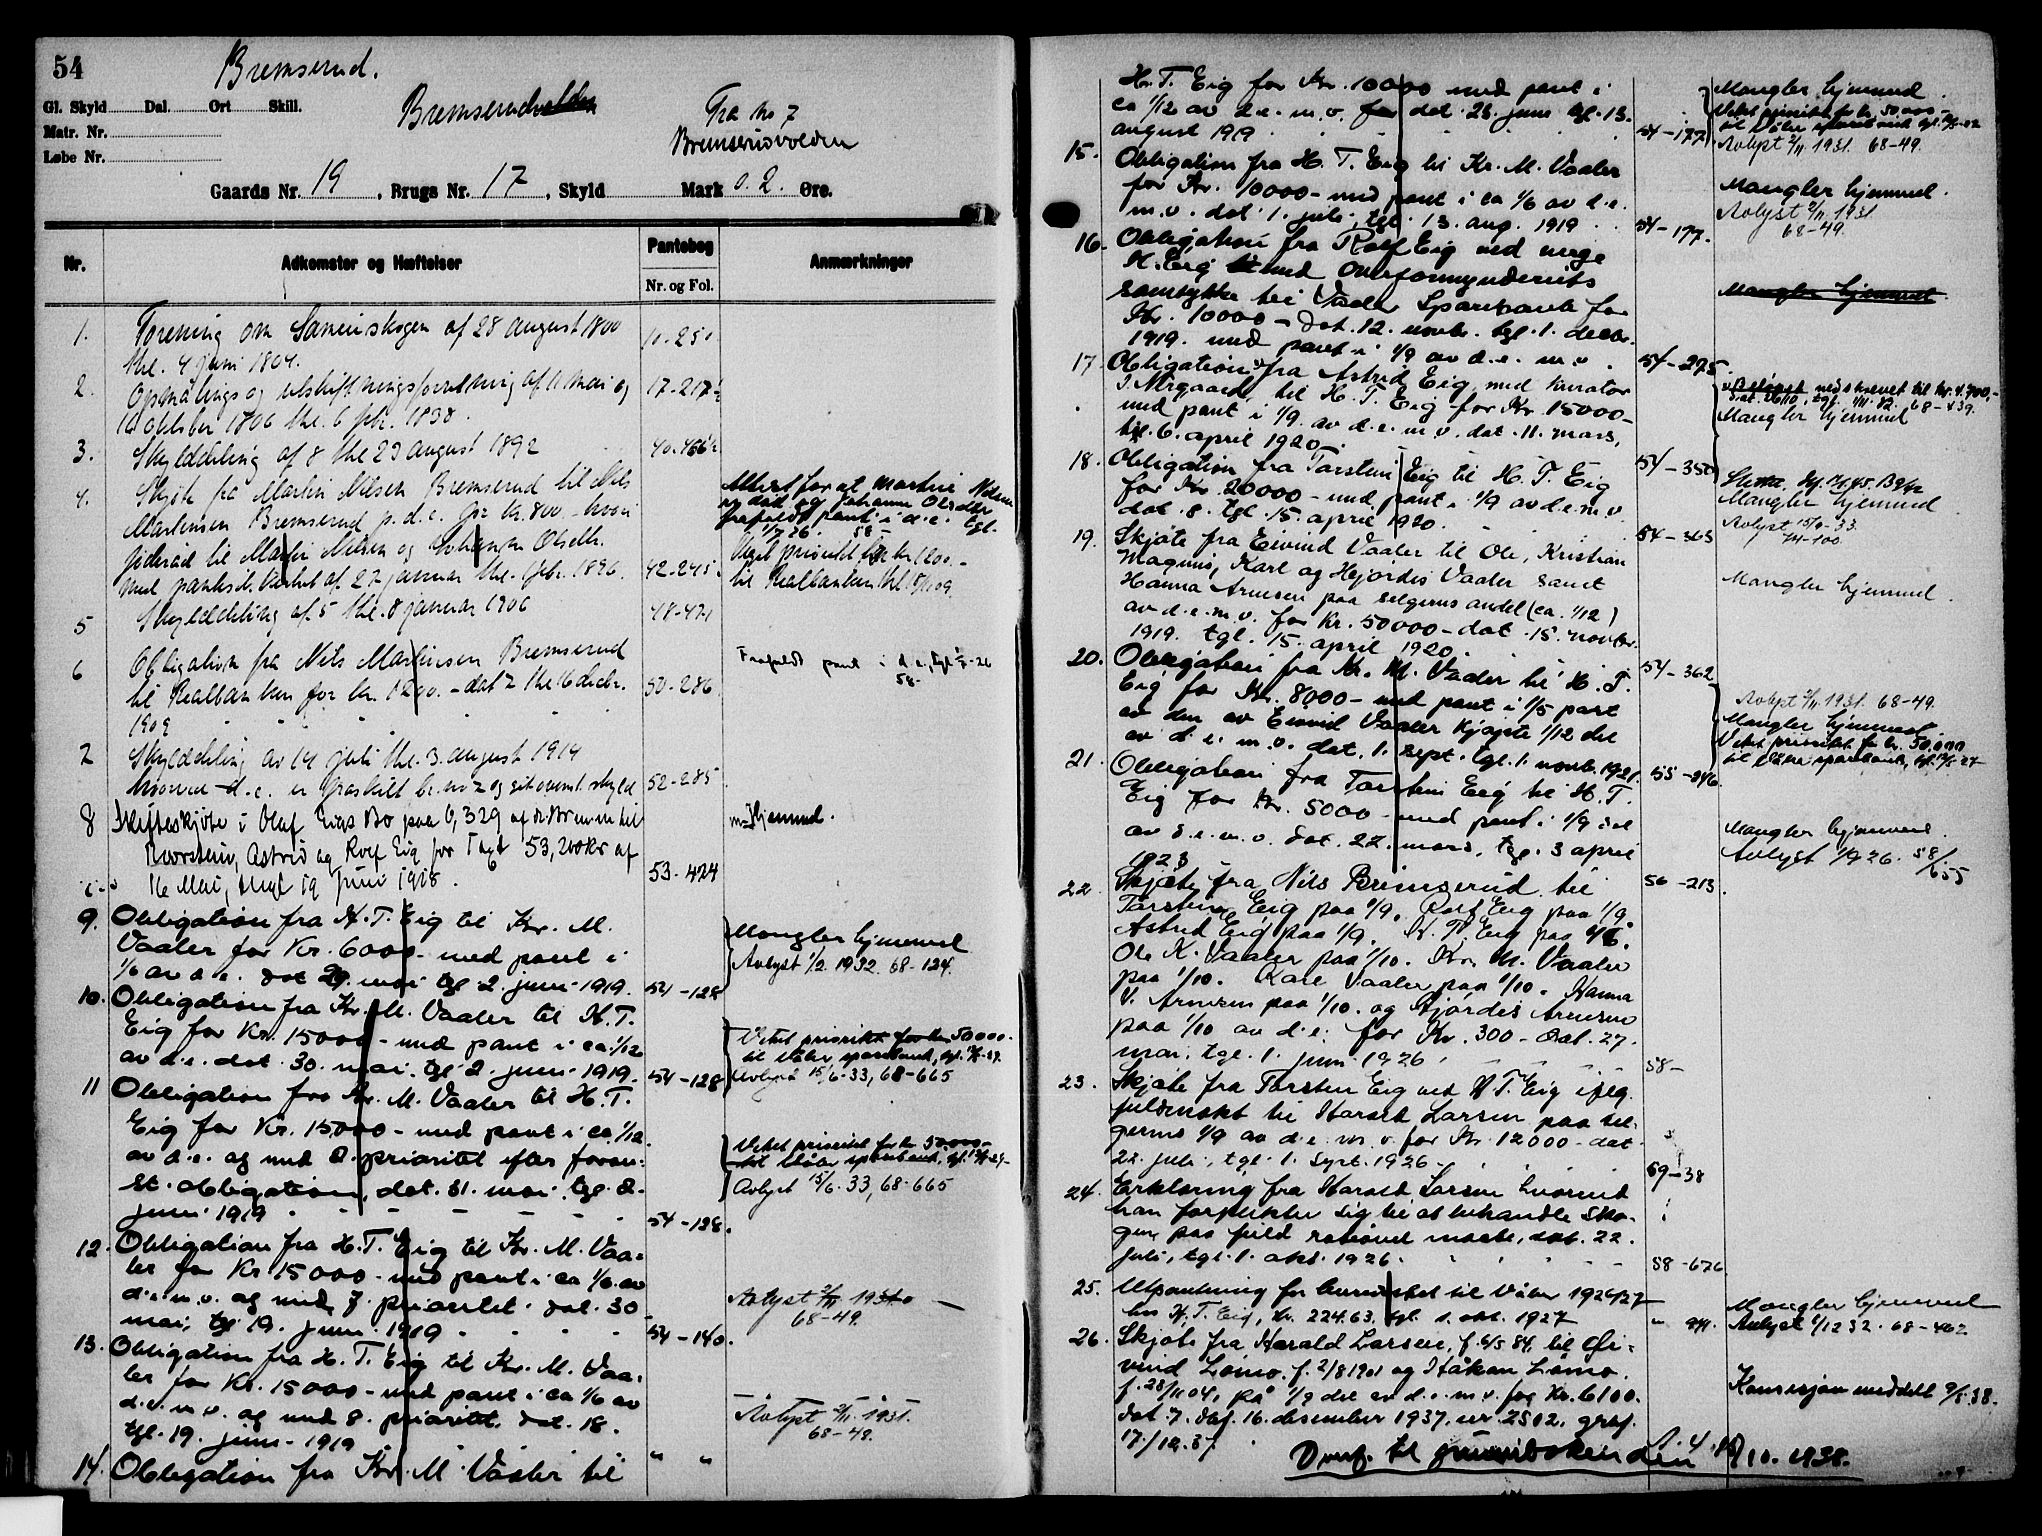 54
Bremserud.
Gl. Skyld Dal. Ort Skill.
Matr. Nr.
Løbe Nr.
Bremserudvolden
Fra No 7
Bremserudvolden
Gaards Nr. 19, Brugs Nr. 17, Skyld Mark 0. 2. Øre.
Nr. Adkomster og Hæftelser Pantebog Anmærkninger
Nr. og Fol.
1. Forening om Sameiskogen af 28 august 1800 10-250
thl. 4 juni 1804.
2. Opmålings og utskiftningsforretning af 11 mai og 17-217½
10 oktober 1806 thl. 6 1838.
3. Skylddeling af 8 thl 23 august 1892 40-466½
4. Skjøte fra Martin Nilsen Bremserud til Nils
Martinsen Bremserud p. d. e. for kr. 800.- hvori
føderåd til Martin Nilsen og Johanne Olsdtr.
med panteret utstedt af 27 januar thl. 1 fbr. 1896. 42-245
Attest for at Martin Nilsen
og Johanne Olsdtr
frafaldt pant i d. e. tgl.
1/7 26. 58-
Veget prioritet for kr 1200.-
til Realbanken thl 16/12 09.
5 Skylddeling af 5 thl. 8 januar 1906 48-471
6 Obligation fra Nils Martinsen Bremserud
til Realbanken for kr. 1200.- dat 2 thl 16 decbr. 50-286
1909
Frafaldt pant i d. e. tgl 1/7-26
58-
7 Skylddeling av 14 juli thl. 3. august 1914
hvorved d. e. er fraskilt br. no 7 og gitt ovenst. skyld 52-285
8 Skifteskjøte i Olaf Eigs Bo paa 0,329 af dr. Brnr. m til m. Hjemmel.
Thorstein, Astrid og Rolf Eig for Taxt 53,200 kr af
16 Mai, thgl 19 Juni 1918. 53-424
9. Obligation fra H. T. Eig til Kr. M.
Vaaler for Kr. 6000- med pant i
1/6 av d. e. dat 29 mai tgl 2. juni 1919. 54-128
Mangler hjemmel
Avlyst 1/2 1932. 68-124.
10. Obligation fra Kr. M. Vaaler til H. T.
Eig for Kr. 15000- med pant i ca 1/12
av d. e. dat. 30. mai. tgl 2. juni 1919. 54-128
Veket prioritet for kr 50000.-
til Våler sparebank, tgl.
Avlyst 15/6-33, 68-665
11 Obligation fra Kr. M. Vaaler til H. T.
Eig for Kr. 15000- med pant i ca 1/12
av d. e. og med 2. prioritet efter foran-
st. obligation, dat. 31. mai. tgl. 2.
juni 1919 54-128.
Veket prioritet for kr 50000-
til Våler sparebank, tgl.
Avlyst 15/6. 33, 68-665
12. Obligation fra H. T. Eig til Kr. M. Vaa-
ler for Kr 15000- med pant i ca 1/6 av
d. e. m. v. og med 7. prioritet. dat. 30
mai, tgl 19. juni 1919 54-140.
Avlyst 2/11 1931
68-49.
13. Obligation fra H. T. Eig til Kr. M. Vaa-
ler for Kr. 15000- med pant i ca 1/6 av
d. e. m. v. og med 8. prioritet. dat. 18.
tgl. 19. juni 1919 " "
Avlyst 2/11 1931.
68-49.
14. Obligation fra Kr. M. Vaaler til
H. T. Eig for Kr. 10000 med pant i
ca 1/12 av d. e. m. v. dat. 28. juni tgl. 13.
august 1919 54-177
Mangler hjemmel.
Veket prioritet for kr. 50.000-
til Våler sparebank tgl.
Avlyst 2/11 1931. 68-49.
15. Obligation fra H. T. Eig til Kr. M. Vaaler
for Kr. 10000- med pant i ca 1/6 av d. e.
m. v. dat. 1. juli, tgl. 13. aug. 1919 54-177.
Mangler hjemmel.
Avlyst 2/11 1931.
68-49.
16. Obligation fra Rolf Eig ved verge
H. Eig med Overformynderiets
samtykke til Vaaler Sparebank for
Kr. 10000- dat. 12. novbr. tgl. 1. decbr.
1919. med pant i 1/9 av d. e. m. v. 54-275.
Mangler hjemmel.
17. Obligation fra Astrid Eig, med kurator
til H. T. Eig for Kr. 15000-
med pant i 1/9. av d. e. m. v. dat. 11. mars,
tgl. 6. april 1920 54-350
Beløpet nedskrevet til kr. 4.700,-
68-439.
Mangler hjemmel
18. Obligation fra Torstein Eig til H. T. Eig
for Kr. 20000- med pant i 1/9 av d. e. m. v.
dat. 8. tgl. 15. april 1920. 54-363
Mangler hjemmel
Avlyst 15/9-33.
19. Skjøte fra Eivind Vaaler til Ole, Kristian
Magnus, Karl og Hjørdis Vaaler samt
Hanna Arnesen paa selgerens andel (ca. 1/12)
av d. e. m. v. for Kr. 50000- dat. 15. novbr.
1919. tgl. 15. april 1920. 54-362
Mangler hjemmel.
20. Obligation fra Kr. M. Vaaler til H. T.
Eig for Kr. 8000- med pant i 1/5 part
av den av Eivind Vaaler kjøpte 1/12 del
av d. e. m. v. dat. 1. sept. tgl. 1. novbr. 1921. 55-246
Avlyst 2/11 1931. 68-49.
Mangler hjemmel.
Veket prioritet for kr. 50.000
til Våler sparebank, tgl.
21. Obligation fra Torstein Eig til H. T.
Eig for Kr. 5000- med pant i 1/9 del
av d. e. m. v. dat. 22. mars, tgl. 3 april
1923 56-213.
Mangler hjemmel.
Avlyst 1/9 26. 58/655
22. Skjøte fra Nils Bremserud til
Torstein Eig paa 1/9, Rolf Eig paa 1/9,
Astrid Eig paa 1/9. H. T. Eig paa 1/6.
Ole K. Vaaler paa 1/10. Kr. M. Vaaler
paa 1/10. Karl Vaaler paa 1/10. Hanna
V. Arnesen paa 1/10. og Hjørdis Arnesen
paa 1/10 av d. e. for Kr. 300- dat. 27.
mai, tgl. 1. juni 1926 58-
23. Skjøte fra Torstein Eig ved H T. Eig iflg.
fuldmakt til Harald Larsen paa sel-
gerens 1/9 av d. e. m. v. for Kr. 12000- dat.
22. juli, tgl. 1. sept. 1926. 59-38
24. Erklæring fra Harald Larsen hvorved
han forplikter sig til at behandle sko-
gen paa fuld rationel maate, dat. 22.
juli, tgl. 1. okt. 1926. 58-676
25. Utpantning for til Våler 1926/27
hos H. T. Eig, Kr. 224.63. tgl. 1. okt. 1927 "
Mangler hjemmel
Avlyst 1/12 32. 68-462
26. Skjøte fra Harald Larsen, f. 6/5 84, til Øi-
vind Lømo f. 2/8 1901 og Håkon Lømo
f. 28/11 04, på 1/9 del av d. e. m. v. for Kr. 6100.
dat. 7. dbf. 16. desember 1937. nr. 2502, graf.
17/12.37.
Konsesjon meddelt 9/5.38.
Overf. til grunnboken den 15/10. 1938.